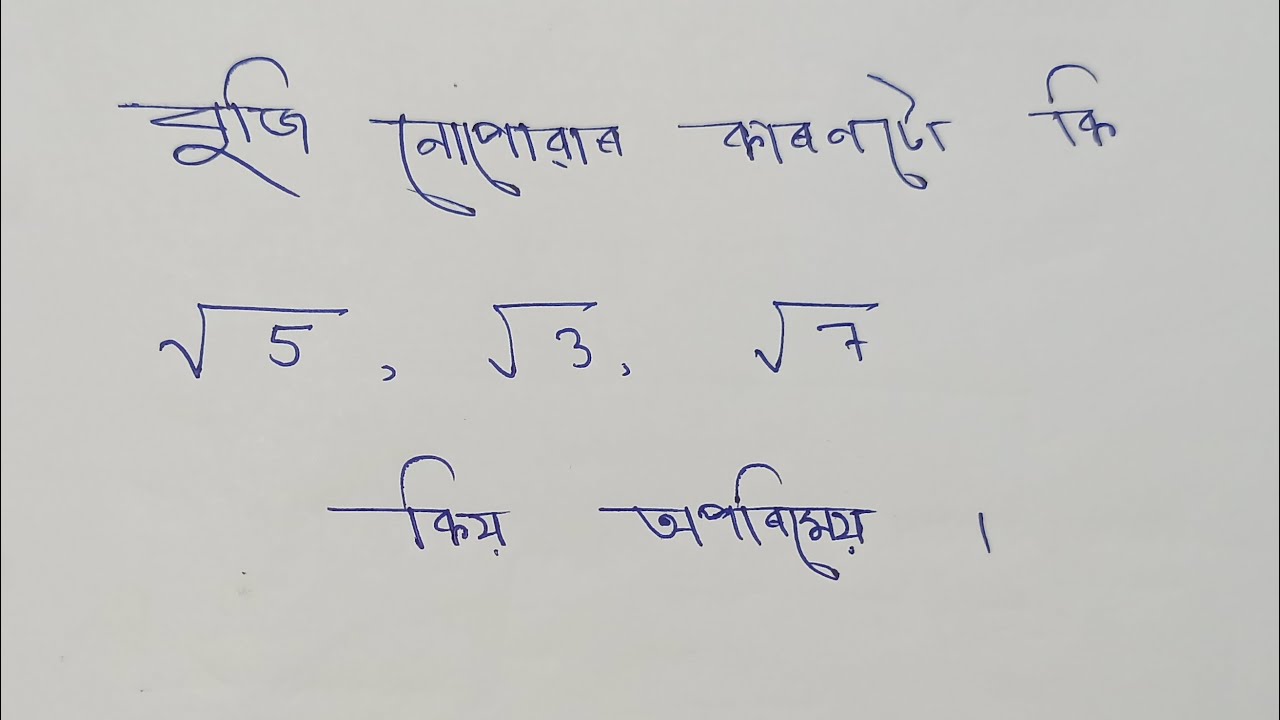 বুজি নোপোৱাৰ কাৰনটো কি
√5, √3, √7
কিয় অপৰিমেয় ।